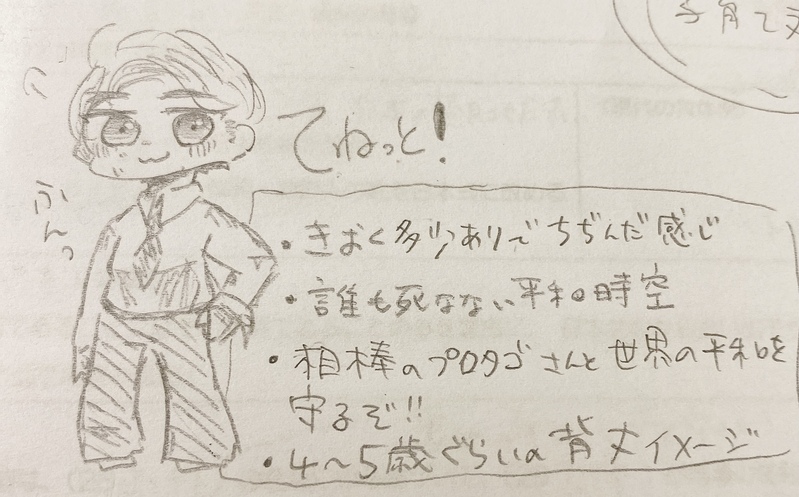 子育て
てねっと!
ふんっ
・きおく多少ありでちぢんだ感じ
・誰も死なない平和時空
・相棒のプロタゴさんと世界の平和を
守るぞ!!
・4〜5歳ぐらいの背丈イメージ